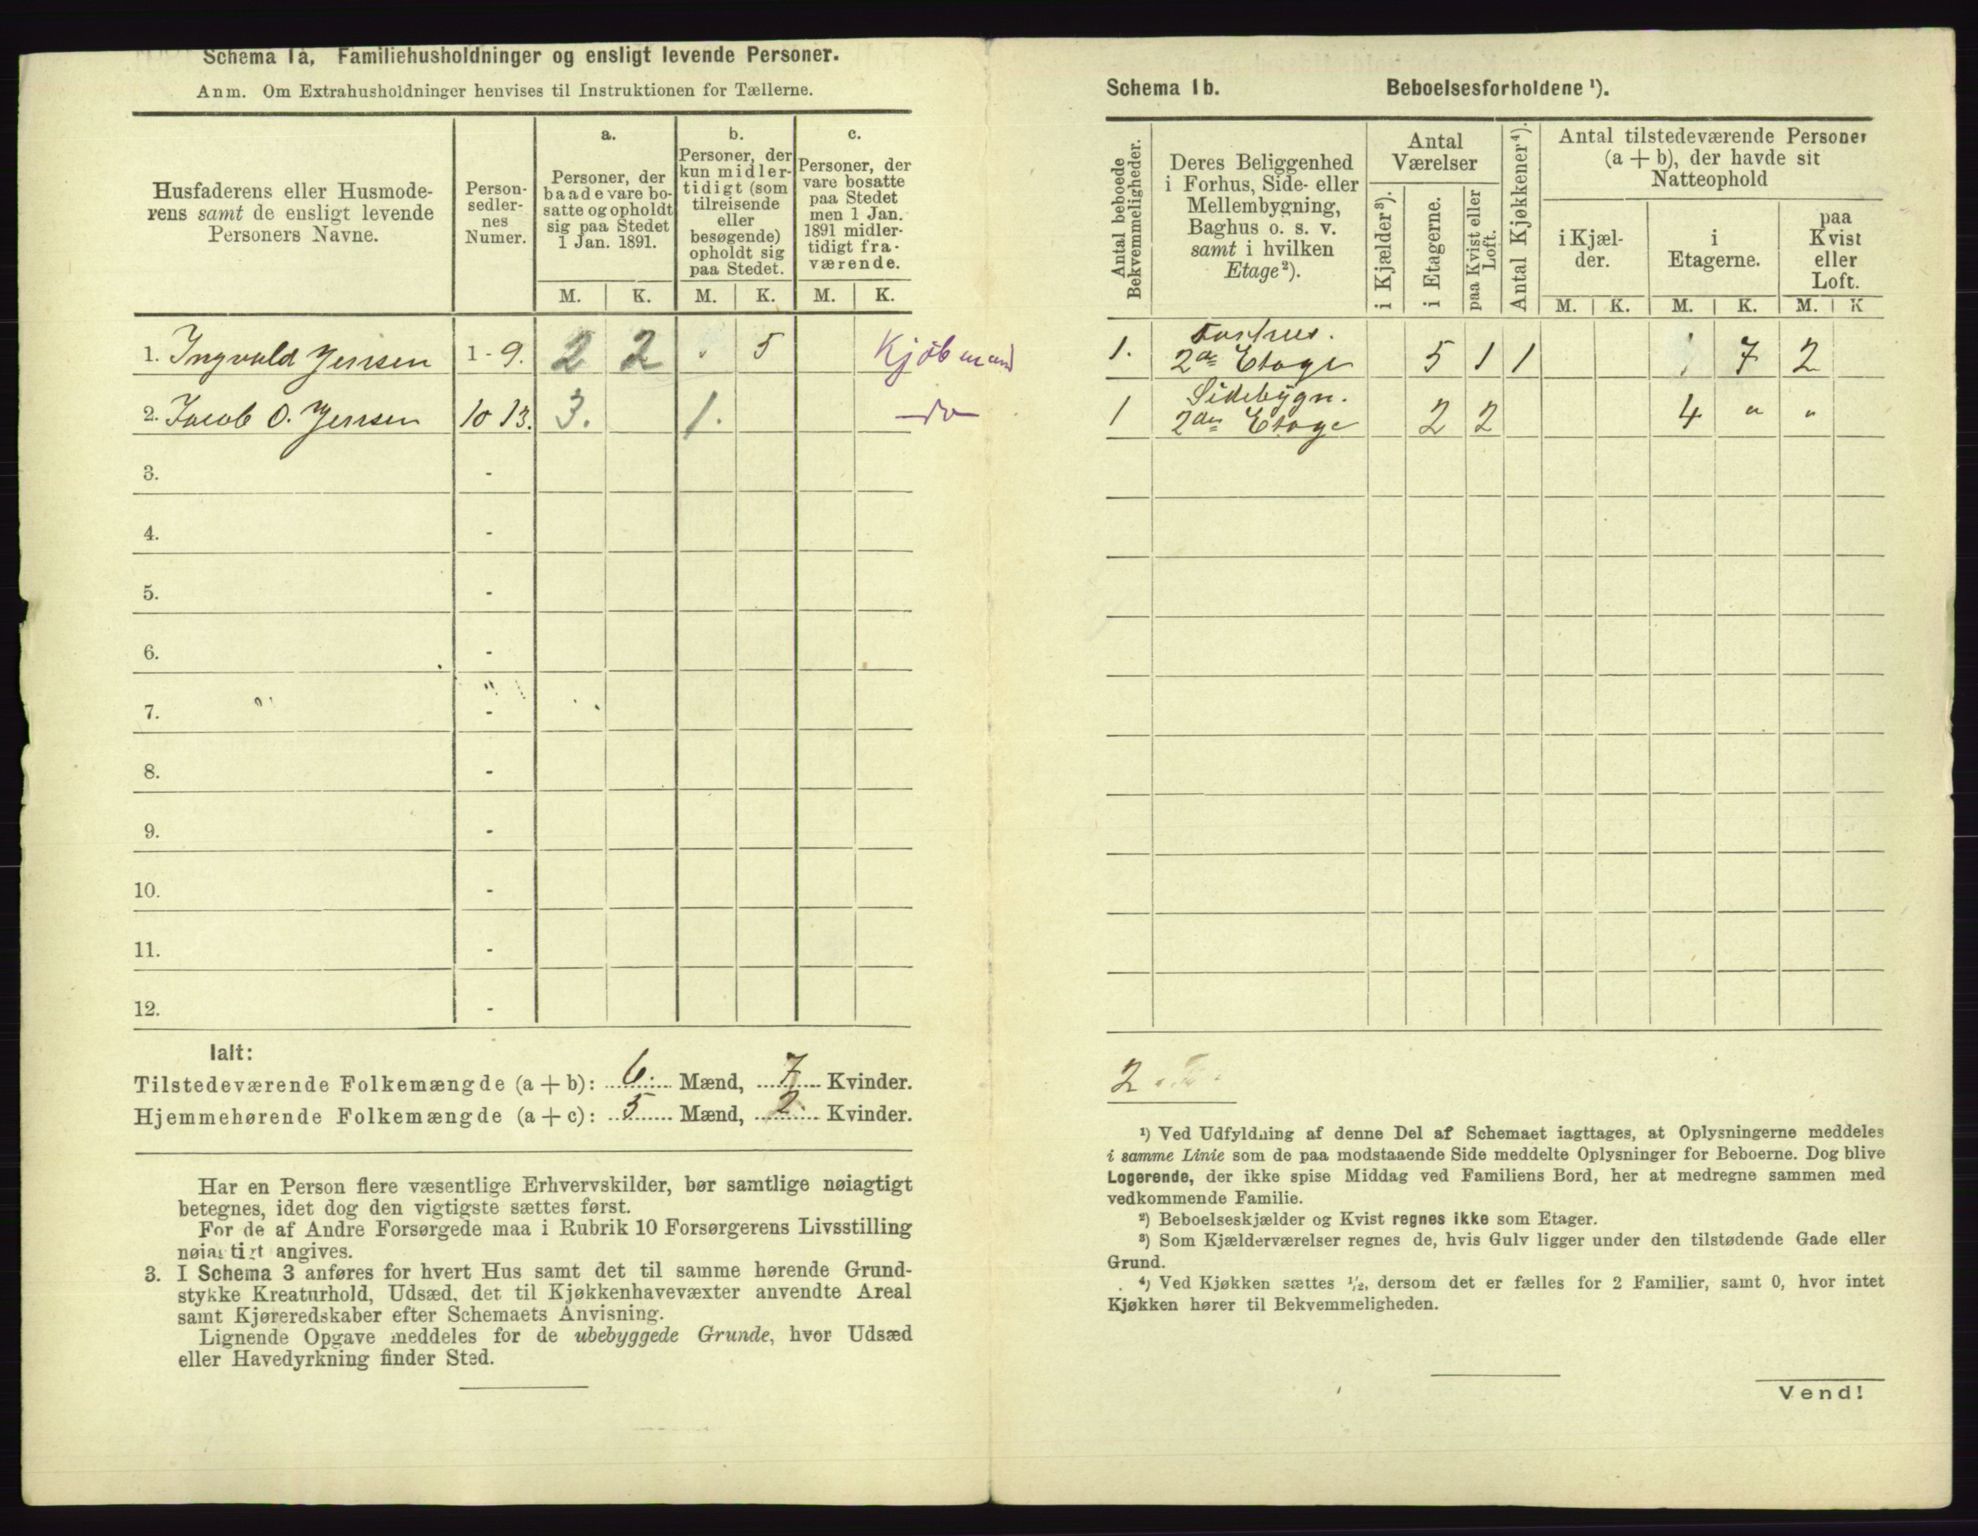 Schema 1a, Familiehusholdninger og ensligt levende Personer.
Anm. Om Extrahusholdninger henvises til Instruktionen for Tællerne.
Husfaderens eller Husmode-
rens samt de ensligt levende
Personers Navne.
Person-
sedler-
nes
Numer.
a.
Personer, der
baade vare bo-
satte og opholdt
sig paa Stedet
1 Jan. 1891.
b.
Personer, der
kun midler-
tidigt (som
tilreisende
eller
besøgende)
opholdt sig
paa Stedet.
c.
Personer, der
vare bosatte
paa Stedet
men 1 Jan.
1891 midler-
tidigt fra-
værende.
M. K. M. K. M. K.
1. Ingvald Jensen 1 - 9. 2 2 5 Kjøbmand
2. Jacob O. Jensen 10 13. 3. 1. — do —
3. -
4. -
5. -
6. -
7. -
8. -
9. -
10. -
11. -
12. -
Ialt:
Tilstedeværende Folkemængde (a + b): 6. Mænd, 7 Kvinder.
Hjemmehørende Folkemængde (a + c): 5 Mænd, 2. Kvinder.
Har en Person flere væsentlige Erhvervskilder, bør samtlige nøiagtigt
betegnes, idet dog den vigtigste sættes først.
For de af Andre Forsørgede maa i Rubrik 10 Forsørgerens Livsstilling
nøiagtigt angives.
3. I Schema 3 anføres for hvert Hus samt det til samme hørende Grund-
stykke Kreaturhold, Udsæd, det til Kjøkkenhavevæxter anvendte Areal
samt Kjøreredskaber efter Schemaets Anvisning.
Lignende Opgave meddeles for de ubebyggede Grunde, hvor Udsæd
eller Havedyrkning finder Sted.
Schema 1b. Beboelsesforholdene ¹).
Antal beboede
Bekvemmeligheder.
Deres Beliggenhed
i Forhus, Side- eller
Mellembygning,
Baghus o. s. v.
samt i hvilken
Etage²).
Antal
Værelser
i Kjælder³).
i Etagerne.
paa Kvist eller
Loft.
Antal Kjøkkener⁴).
Antal tilstedeværende Personer
(a + b), der havde sit
Natteophold
i Kjæl-
der.
i
Etagerne.
paa
Kvist
eller
Loft.
M. K. M. K. M. K
Forhus.
1. 2de Etage 5 1 1 7 2
Sidebygn.
1 2den Etage 2 2 4 " "
2
¹) Ved Udfyldning af denne Del af Schemaet iagttages, at Oplysningerne meddeles
i samme Linie som de paa modstaaende Side meddelte Oplysninger for Beboerne. Dog blive
Logerende, der ikke spise Middag ved Familiens Bord, her at medregne sammen med
vedkommende Familie.
²) Beboelseskjælder og Kvist regnes ikke som Etager.
³) Som Kjælderværelser regnes de, hvis Gulv ligger under den tilstødende Gade eller
Grund.
⁴) Ved Kjøkken sættes ½, dersom det er fælles for 2 Familier, samt 0, hvor intet
Kjøkken hører til Bekvemmeligheden.
Vend!